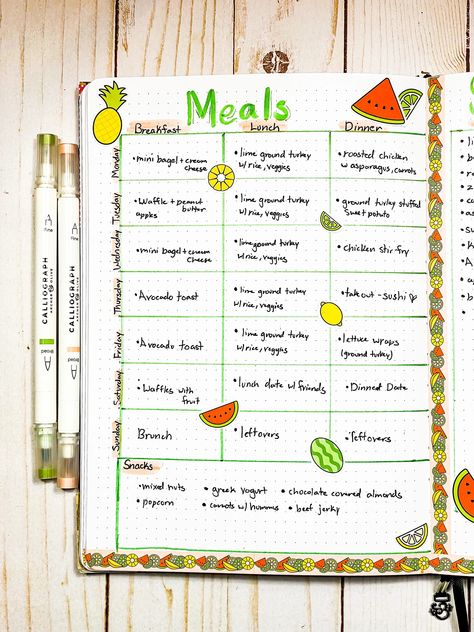 Meals
Breakfast
Lunch
Dinner
Monday
• mini bagel + cream
cheese
• lime ground turkey
w/ rice, veggies
• roasted chicken
w asparagus, carrots
Tuesday
• Waffle + peanut
apples butter
• lime ground turkey
w/ rice, veggies
• ground turkey stuffed
sweet potato
Wednesday
• mini bagel + cream
cheese
• lime ground turkey
w/ rice, veggies
• chicken stir-fry
Thursday
• Avocado toast
• lime ground turkey
w/ rice, veggies
• takeout - sushi ♡
Friday
• Avocado toast
• lime ground turkey
w/ rice, veggies
• lettuce wraps
(ground turkey)
Saturday
• Waffles with
fruit
• lunch date w/ friends
• Dinned Date
Sunday
Brunch
• leftovers
• leftovers
Snacks
• mixed nuts
• greek yogurt
• chocolate covered almonds
• popcorn
• carrots w/ hummus
• beef jerky
A fine
CALLIOGRAPH
pastel
A fine
CALLIOGRAPH
pastel